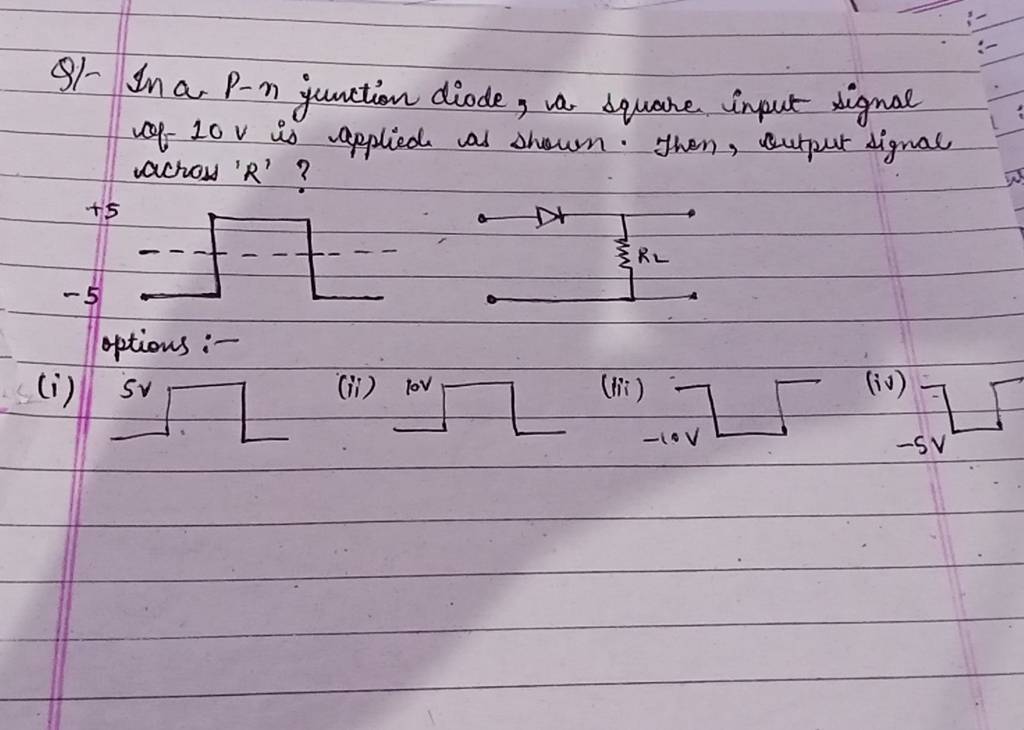 Q/- In a P-n junction diode, a square input signal
of 10 v is applied as shown. Then, output signal
across 'R' ?
+5
RL
-5
options :-
(i) 5V (ii) 10V (iii) (iv)
-10V -5V